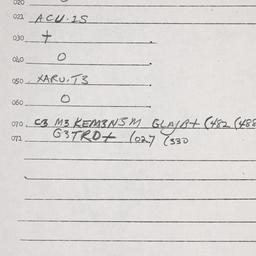 020
021 ACU.IS
030 +
040 0
050 XARU.T3
060 0
070 C3 M3 KEM3NSM GLAIB+ (482 (488
071 G3TRD+ (027 (330